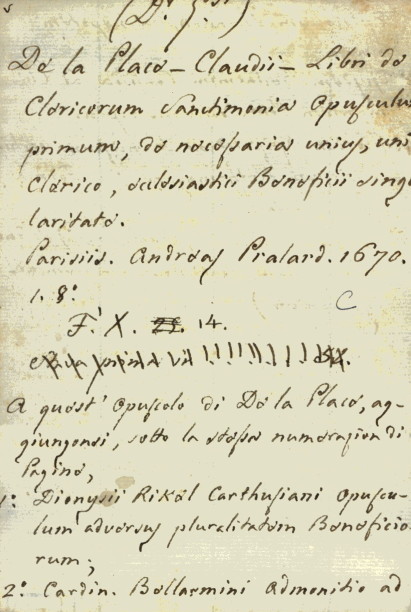 De la Place – Claudii – Libri de
Clericorum Sanctimonia Opusculu
primum, de necessaria unius, uni
Clerico, eclesiastici Beneficii singu
laritate.
Parisiis. Andreas Pralard. 1670.
1. 8.º
C
F. X. 14.
A quest' Opuscolo di De la Place, ag-
giungonsi, sotto la stessa numerazion di
Pagine,
1.º Dionysii Rikel Carthusiani Opuscu-
lum adversus pluralitatem Beneficio
rum;
2.º Cardin. Bellarmini Admonitio ad